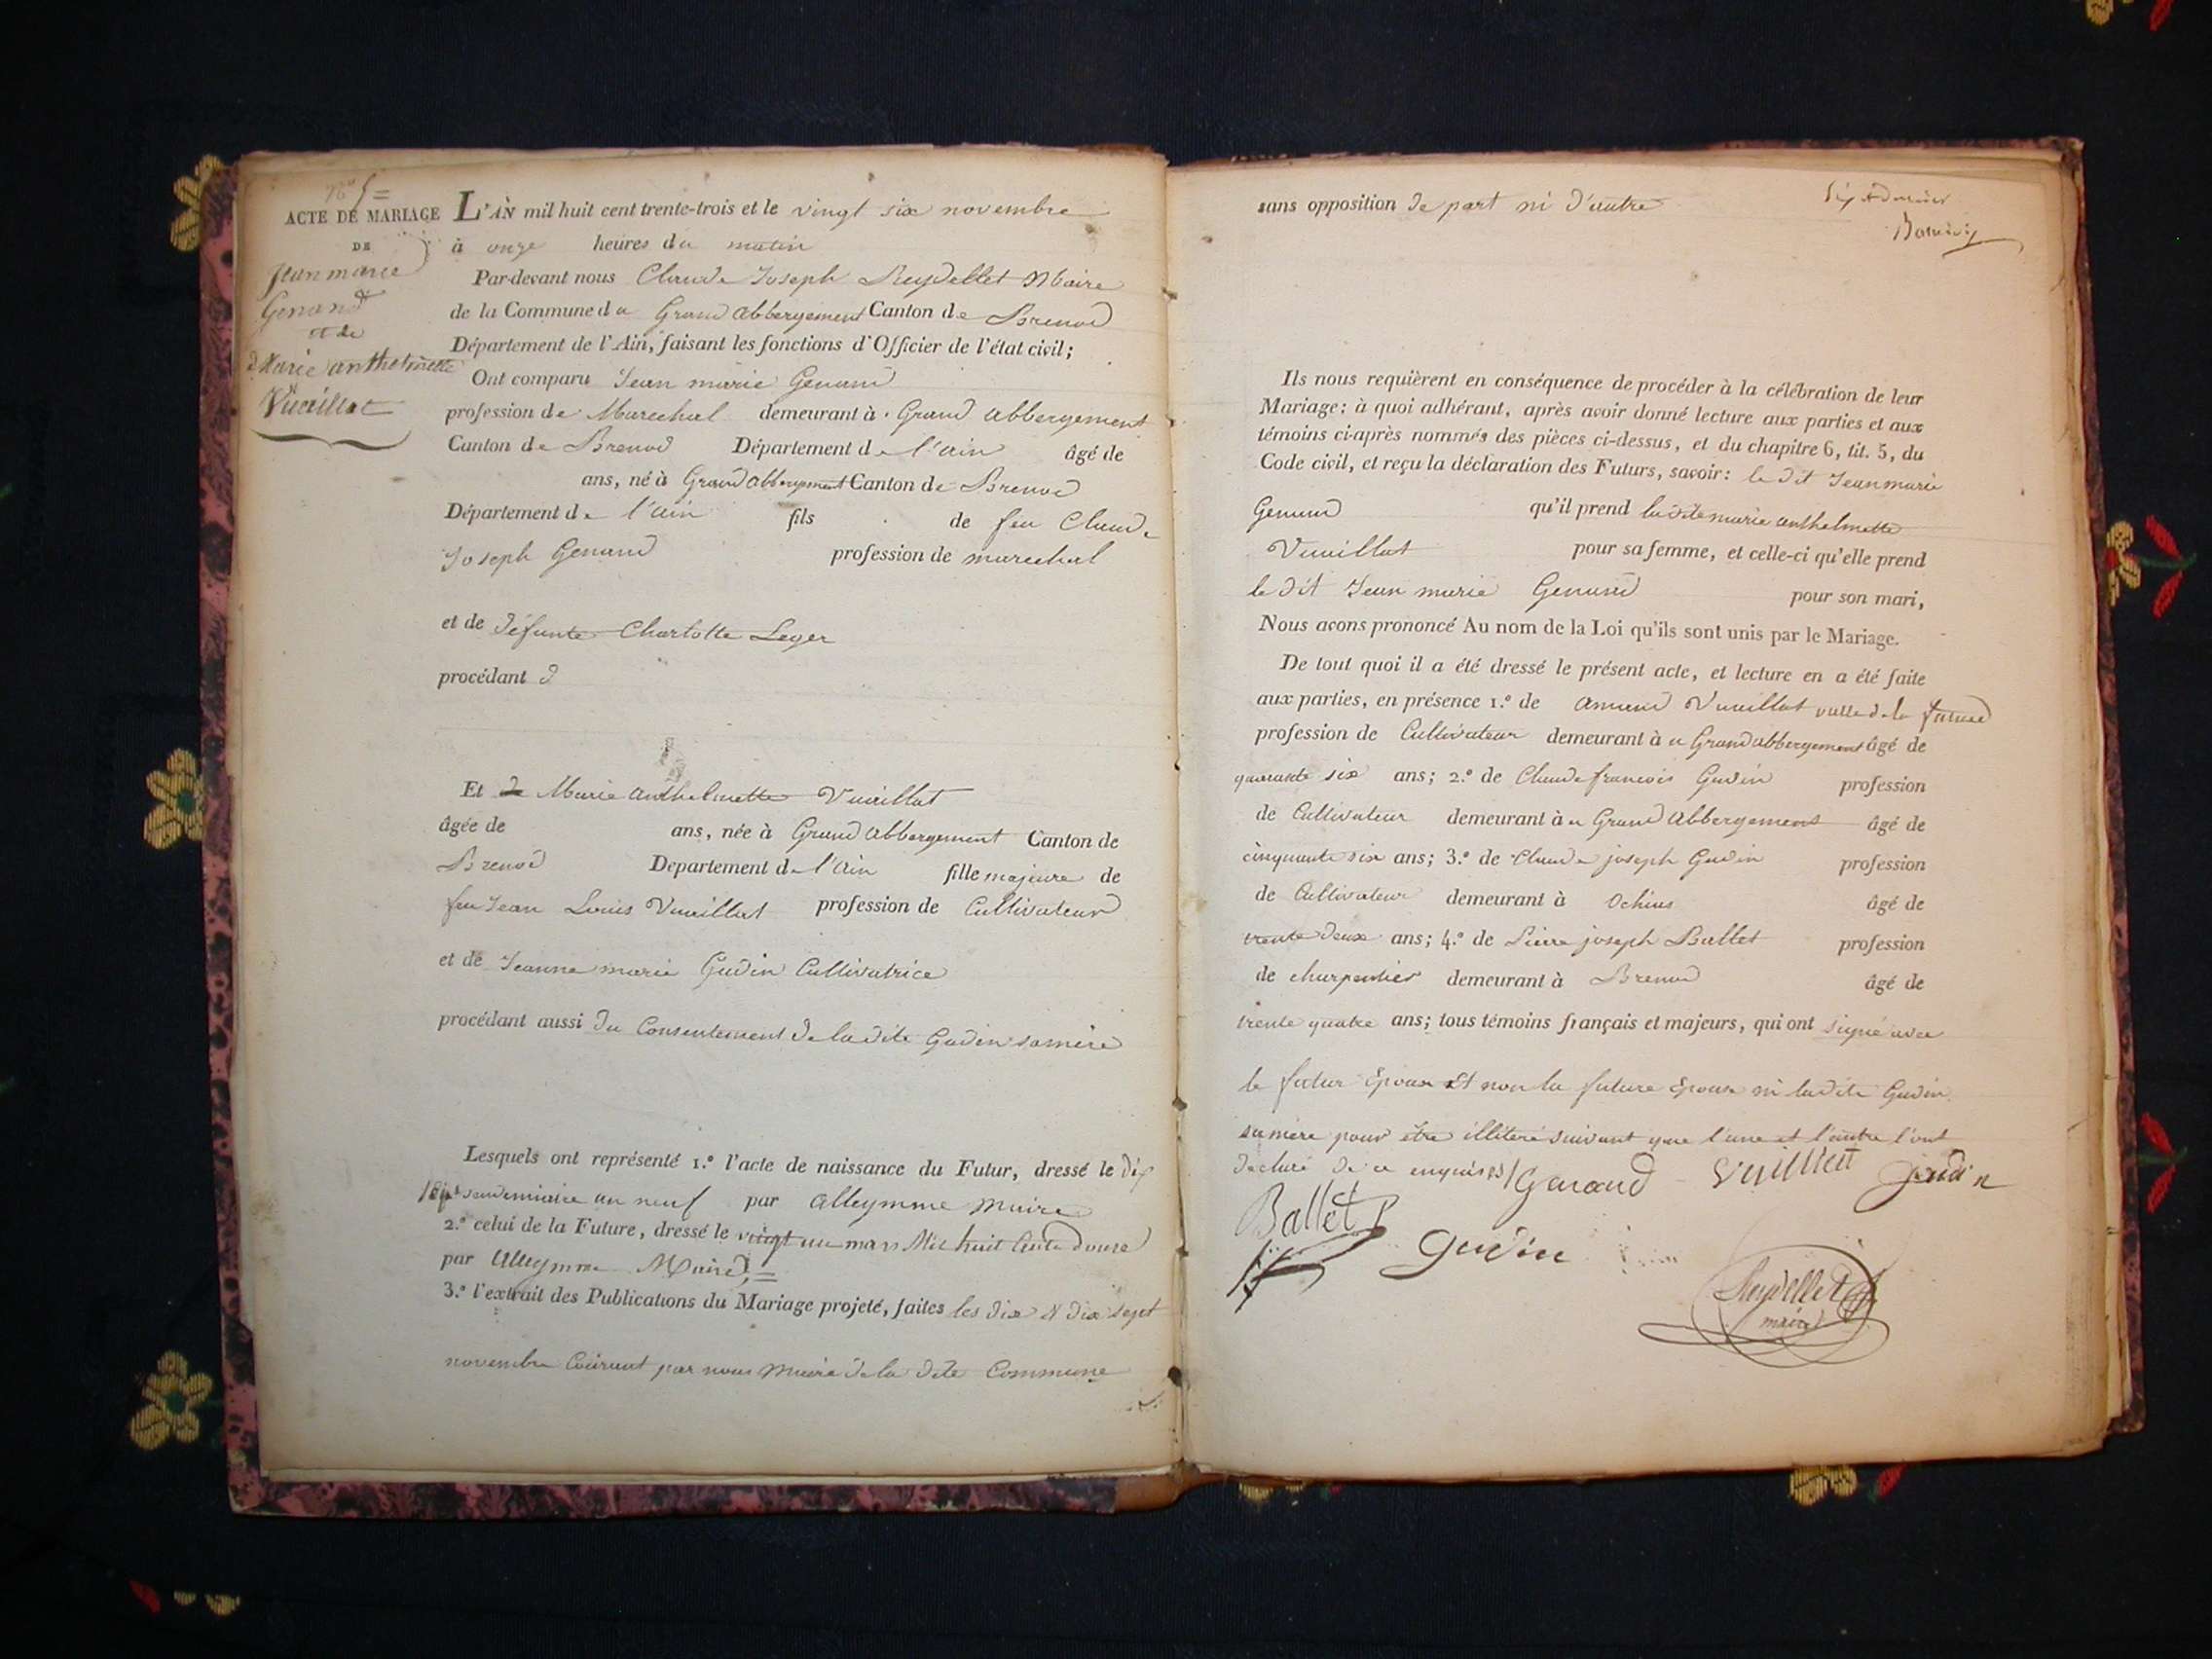 N° 5
ACTE DE MARIAGE
DE
Jean marie
Genand
et de
Marie anthelmette
Vuaillat
L'AN mil huit cent trente-trois et le vingt six novembre
à onze heures du matin
Par-devant nous Claude Joseph Reydellet Maire
de la Commune du Grand abbergement Canton de Brenod
Département de l'Ain, faisant les fonctions d'Officier de l'état civil;
Ont comparu Jean marie Genand
profession de Marechal demeurant à Grand abbergement
Canton de Brenod Département de l'ain âgé de
ans, né à Grand abbergement Canton de Brenod
Département de l'ain fils de feu Claude
Joseph Genand profession de marechal
et de défunte Charlotte Leger
procédant d
Et de Marie anthelmette Vuaillat
âgée de ans, née à Grand abbergement Canton de
Brenod Departement de l'ain fille majeure de
feu Jean Louis Vuaillat profession de Cultivateur
et de Jeanne marie Gudin Cultivatrice
procédant aussi du Consentement de la dite Gudin sa mère
Lesquels ont représenté 1.° l'acte de naissance du Futur, dressé le dix
vendemiaire an neuf par alleymme maire
2.° celui de la Future, dressé le vingt un mars Mil huit Cent douze
par alleymme Maire
3.° l'extrait des Publications du Mariage projeté, faites les dix et dix sept
novembre Courant par nous maire de la dite Commune
sans opposition de part ni d'autre
Ils nous requièrent en conséquence de procéder à la célébration de leur
Mariage: à quoi adhérant, après avoir donné lecture aux parties et aux
témoins ci-après nommés des pièces ci-dessus, et du chapitre 6, tit. 5, du
Code civil, et reçu la déclaration des Futurs, savoir: le dit Jean marie
Genand qu'il prend la dite marie anthelmette
Vuaillat pour sa femme, et celle-ci qu'elle prend
le dit Jean marie Genand pour son mari,
Nous avons prononcé Au nom de la Loi qu'ils sont unis par le Mariage.
De tout quoi il a été dressé le présent acte, et lecture en a été faite
aux parties, en présence 1.° de amand Vuaillat de la future
profession de Cultivateur demeurant à u Grand abbergement âgé de
quarante six ans; 2.° de Claude francois Gudin profession
de Cultivateur demeurant à u Grand abbergement âgé de
cinquante six ans; 3.° de Claude joseph Gudin profession
de Cultivateur demeurant à Ochias âgé de
trente deux ans; 4.° de Pierre joseph Ballet profession
de charpentier demeurant à Brenod âgé de
trente quatre ans; tous témoins français et majeurs, qui ont signé avec
le futur Epoux et non la future Epouse ni la dite Gudin
sa mère pour être illiteré suivant que l'une et l'autre l'ont
declaré de ce enquises Genand Vuilliat Gudin
Ballet
Gudin
Reydellet
maire